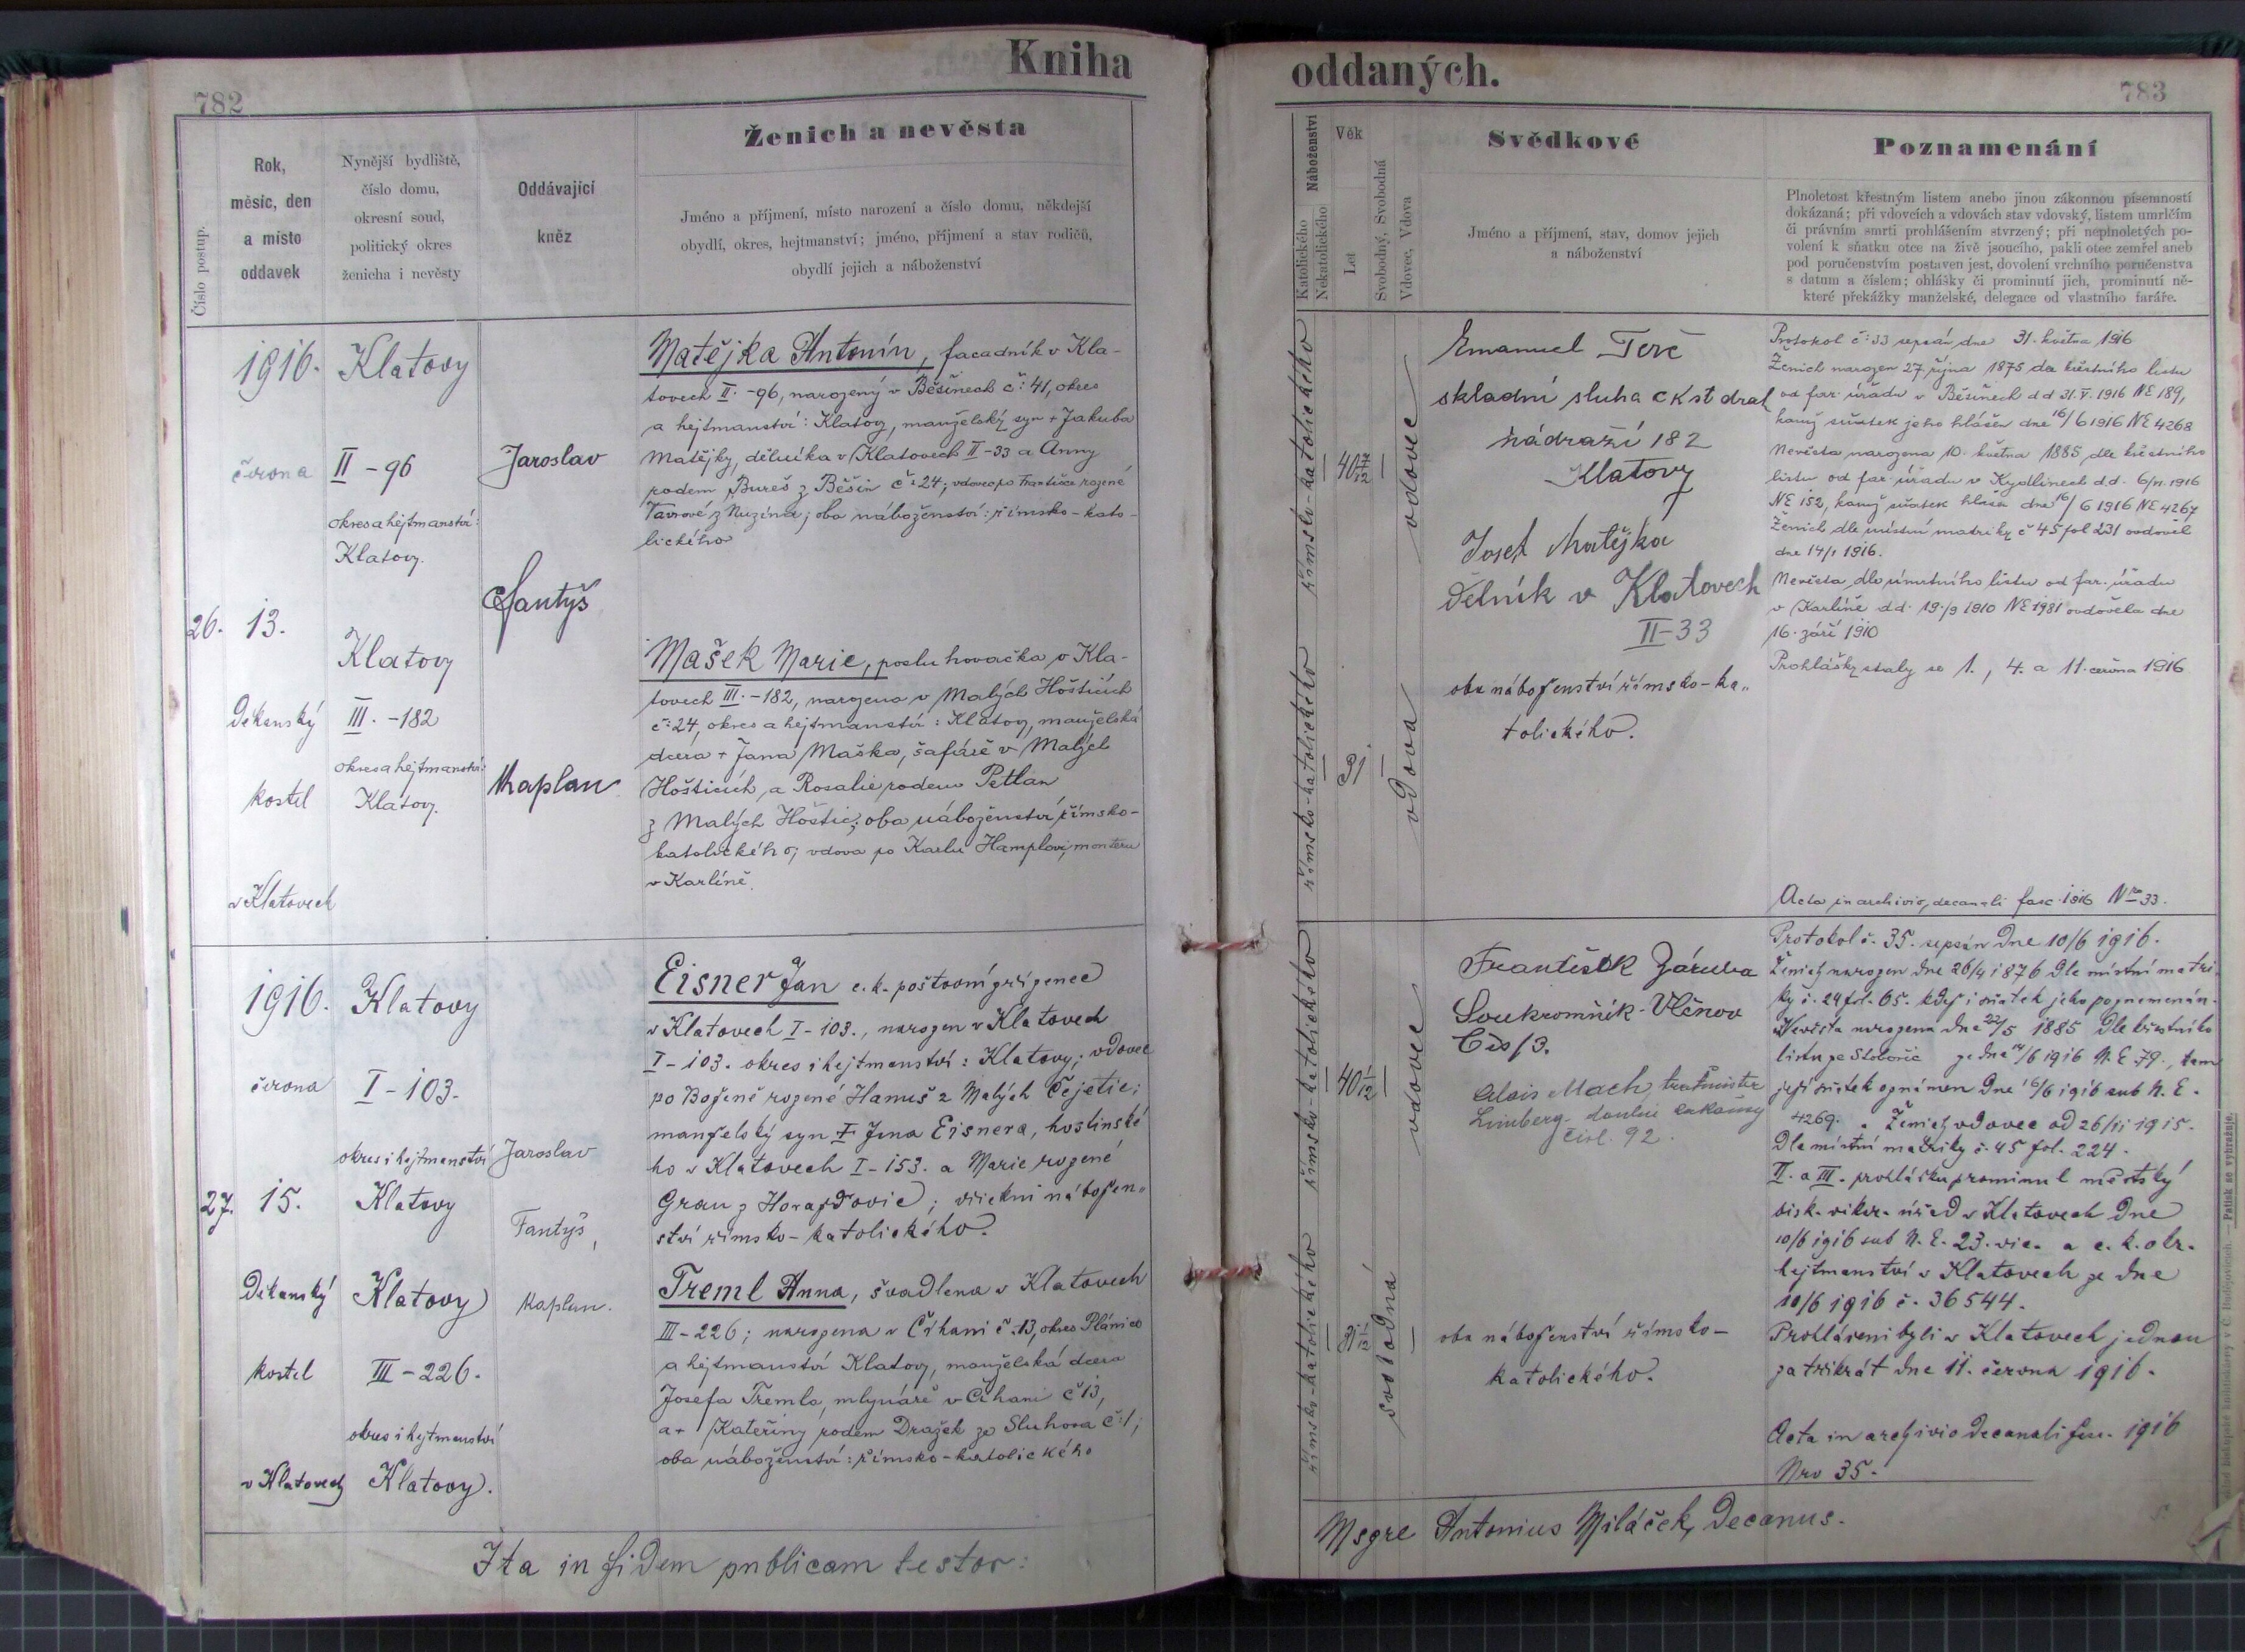 Kniha
oddaných.
782
783
Číslo postup.
Rok,
měsíc, den
a místo
oddavek
Nynější bydliště,
číslo domu,
okresní soud,
politický okres
ženicha i nevěsty
Oddávající
kněz
Ženich a nevěsta
Jméno a příjmení, místo narození a číslo domu, někdejší
obydlí, okres, hejtmanství; jméno, příjmení a stav rodičů,
obydlí jejich a náboženství
Náboženství
Katolického
Nekatolického
Věk
Let
Svobodný, Svobodná
Vdovec, Vdova
Svědkové
Jméno a příjmení, stav, domov jejich
a náboženství
Poznamenání
Plnoletost křestným listem anebo jinou zákonnou písemností
dokázaná; při vdovcích a vdovách stav vdovský, listem umrlčím
či právním smrti prohlášením stvrzený; při neplnoletých po-
volení k sňatku otce na živě jsoucího, pakli otec zemřel aneb
pod poručenstvím postaven jest, dovolení vrchního poručenstva
s datum a číslem; ohlášky či prominutí jich, prominutí ně-
které překážky manželské, delegace od vlastního faráře.
26.
1916.
června
13.
Děkanský
kostel
v Klatovech
Klatovy
II-96
okres a hejtmanství:
Klatovy.
Klatovy
III.-182
okres a hejtmanství:
Klatovy.
Jaroslav
Fantyš
Kaplan
Matějka Antonín, facadník v Kla-
tovech II.-96, narozený v Běšinech č: 41, okres
a hejtmanství: Klatovy, manželský syn + Jakuba
Matějky, dělníka v Klatovech II-33 a Anny
rodem Bureš z Běšin č: 24; vdovec po Františce rozené
Vavrové z Nuzína; oba náboženství: římsko-kato-
lického
Mašek Marie, posluhovačka v Kla-
tovech III.-182, narozena v Malých Hošticích
č: 24, okres a hejtmanství: Klatovy, manželská
dcera + Jana Maška, šafáře v Malých
Hošticích a Rosalie rodem Petlan
z Malých Hoštic; oba náboženství římsko-
katolického; vdova po Karlu Hamplovi, monteru
v Karlíně.
římsko-katolického
římsko-katolického
40 7/12
31
vdovec
vdova
Emanuel Terč
skladní sluha c k st drah
nádraží 182
Klatovy
Josef Matějka
Dělník v Klatovech
II-33
oba náboženství římsko-ka„
tolického.
Protokol č: 33 sepsán dne 31. května 1916
Ženich narozen 27. října 1875 dle křestního listu
od far. úřadu v Běšinech d d 31. V. 1916 NE 189,
kamž sňatek jeho hlášen dne 16/6 1916 NE 4268
Nevěsta narozena 10. května 1885 dle křestního
listu od far. úřadu v d.d. 6/VI. 1916
NE 152, kamž sňatek hlášen dne 16/6 1916 NE 4267
Ženich dle místní matriky č 45 fol 231 ovdověl
dne 14/1 1916.
Nevěsta dle úmrtního listu od far. úřadu
v Karlíně d.d. 19./9 1910 NE 1981 ovdověla dne
16. září 1910
Prohlášky staly se 1., 4. a 11. června 1916
Acta in archivio decanali fasc. 1916 Nro 33.
27.
1916.
června
15.
Děkanský
kostel
v Klatovech
Klatovy
I-103.
okres i hejtmanství
Klatovy
Klatovy
III-226.
okres i hejtmanství
Klatovy.
Jaroslav
Fantyš,
kaplan.
Eisner Jan c.k. poštovní zřízenec
v Klatovech I-103., narozen v Klatovech
I-103. okres i hejtmanství: Klatovy; vdovec
po Boženě rozené Hanuš z Malých Čejetic;
manželský syn + Jana Eisnera, hostinské
ho v Klatovech I-153. a Marie rozené
Grau z Horažďovic; všickni nábožen„
ství římsko-katolického.
Treml Anna, švadlena v Klatovech
III-226; narozena v Číhani č. 13, okres Plánice
a hejtmanství Klatovy, manželská dcera
Josefa Tremla, mlynáře v Číhani č 13,
a + Kateřiny rodem Dražek ze Sluhova č: 1;
oba náboženství: římsko-katolického
římsko-katolického
římsko-katolického
40 1/12
31 1/12
vdovec
svobodná
František Záruba
Soukromník-Vlčnov
Čís/3.
Alois Mach,
čísl. 92.
oba náboženství římsko-
katolického.
Protokol č. 35. sepsán dne 10/6 1916.
Ženich narozen dne 26/4 1876 dle místní matri„
ky č. 24 fol. 65. kdež i sňatek jeho poznamenán.
Nevěsta narozena dne 22/5 1885 dle křestního
listu ze ze dne 14/6 1916 N. E. 79., tam
její sňatek oznámen dne 16/6 1916 sub N. E.
4269. Ženich vdovec od 26/11 1915.
Dle místní matriky č. 45 fol. 224.
II. a III. prohlášku prominul městský
bisk. vikar. úřad v Klatovech dne
10/6 1916 sub N. E. 23. vic. a c. k. okr.
hejtmanství v Klatovech ze dne
10/6 1916 č. 36544.
Prohlášeni byli v Klatovech jednou
za třikrát dne 11. června 1916.
Acta in archivio decanali fasc. 1916
Nro 35.
Ita in fidem publicam testor:
Msgre Antonius Miláček, Decanus.